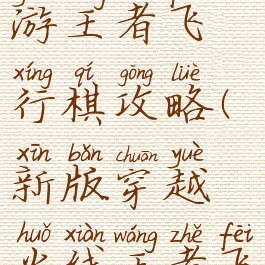 游王者飞
xíng qí gōng lüè
行棋攻略(
xīn bǎn chuān yuè
新版穿越
huǒ xiàn wáng zhě fēi
火线王者飞